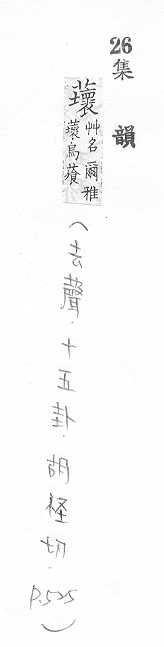 26
集韻
蘾艸名爾雅
蘾烏蕵
(去聲.十五卦.胡怪切.P.525)